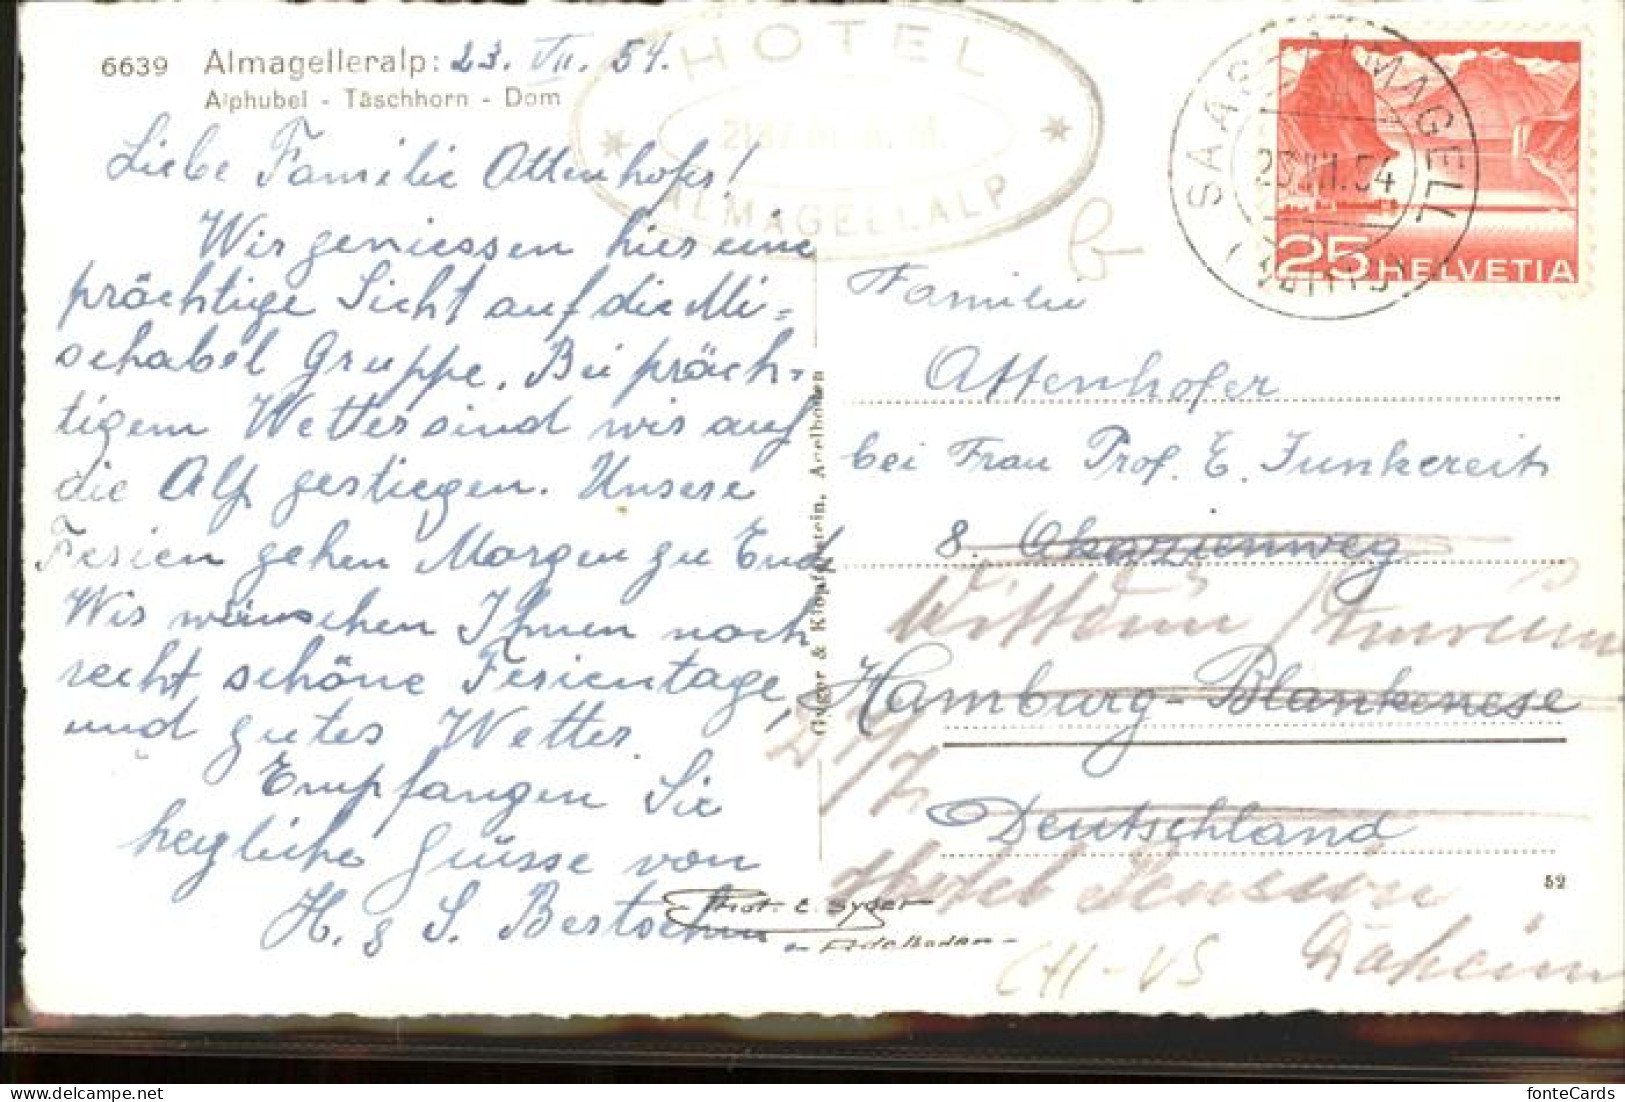 6639 Almagelleralp: 23. VII. 54.
Alphubel - Täschhorn - Dom
HOTEL
ALMAGELLALP
SAAS-ALMAGELL
23.VII.54
25 HELVETIA
b
Liebe Familie Attenhofer!
Wir geniessen hier eine
prächtige Sicht auf die Mi=
schabel Gruppe. Bei präch=
tigem Wetter sind wir auf
die Alp gestiegen. Unsere
Ferien gehen Morgen zu Ende
Wir wünschen Ihnen noch
recht schöne Ferientage,
und gutes Wetter.
Empfangen Sie
herzliche Grüsse von
H. & S. Bertschi
Gyger & Klopfenstein, Adelboden
Familie
Attenhofer
bei Frau Prof. E. Junkereit
8. Akazienweg
Wittdün / Amrum
Hamburg-Blankenese
24/7
Deutschland
Hotel Pension
Daheim
52
Phot. E. Gyger
Adelboden
CH-VS
delcampe.net
fonteCards